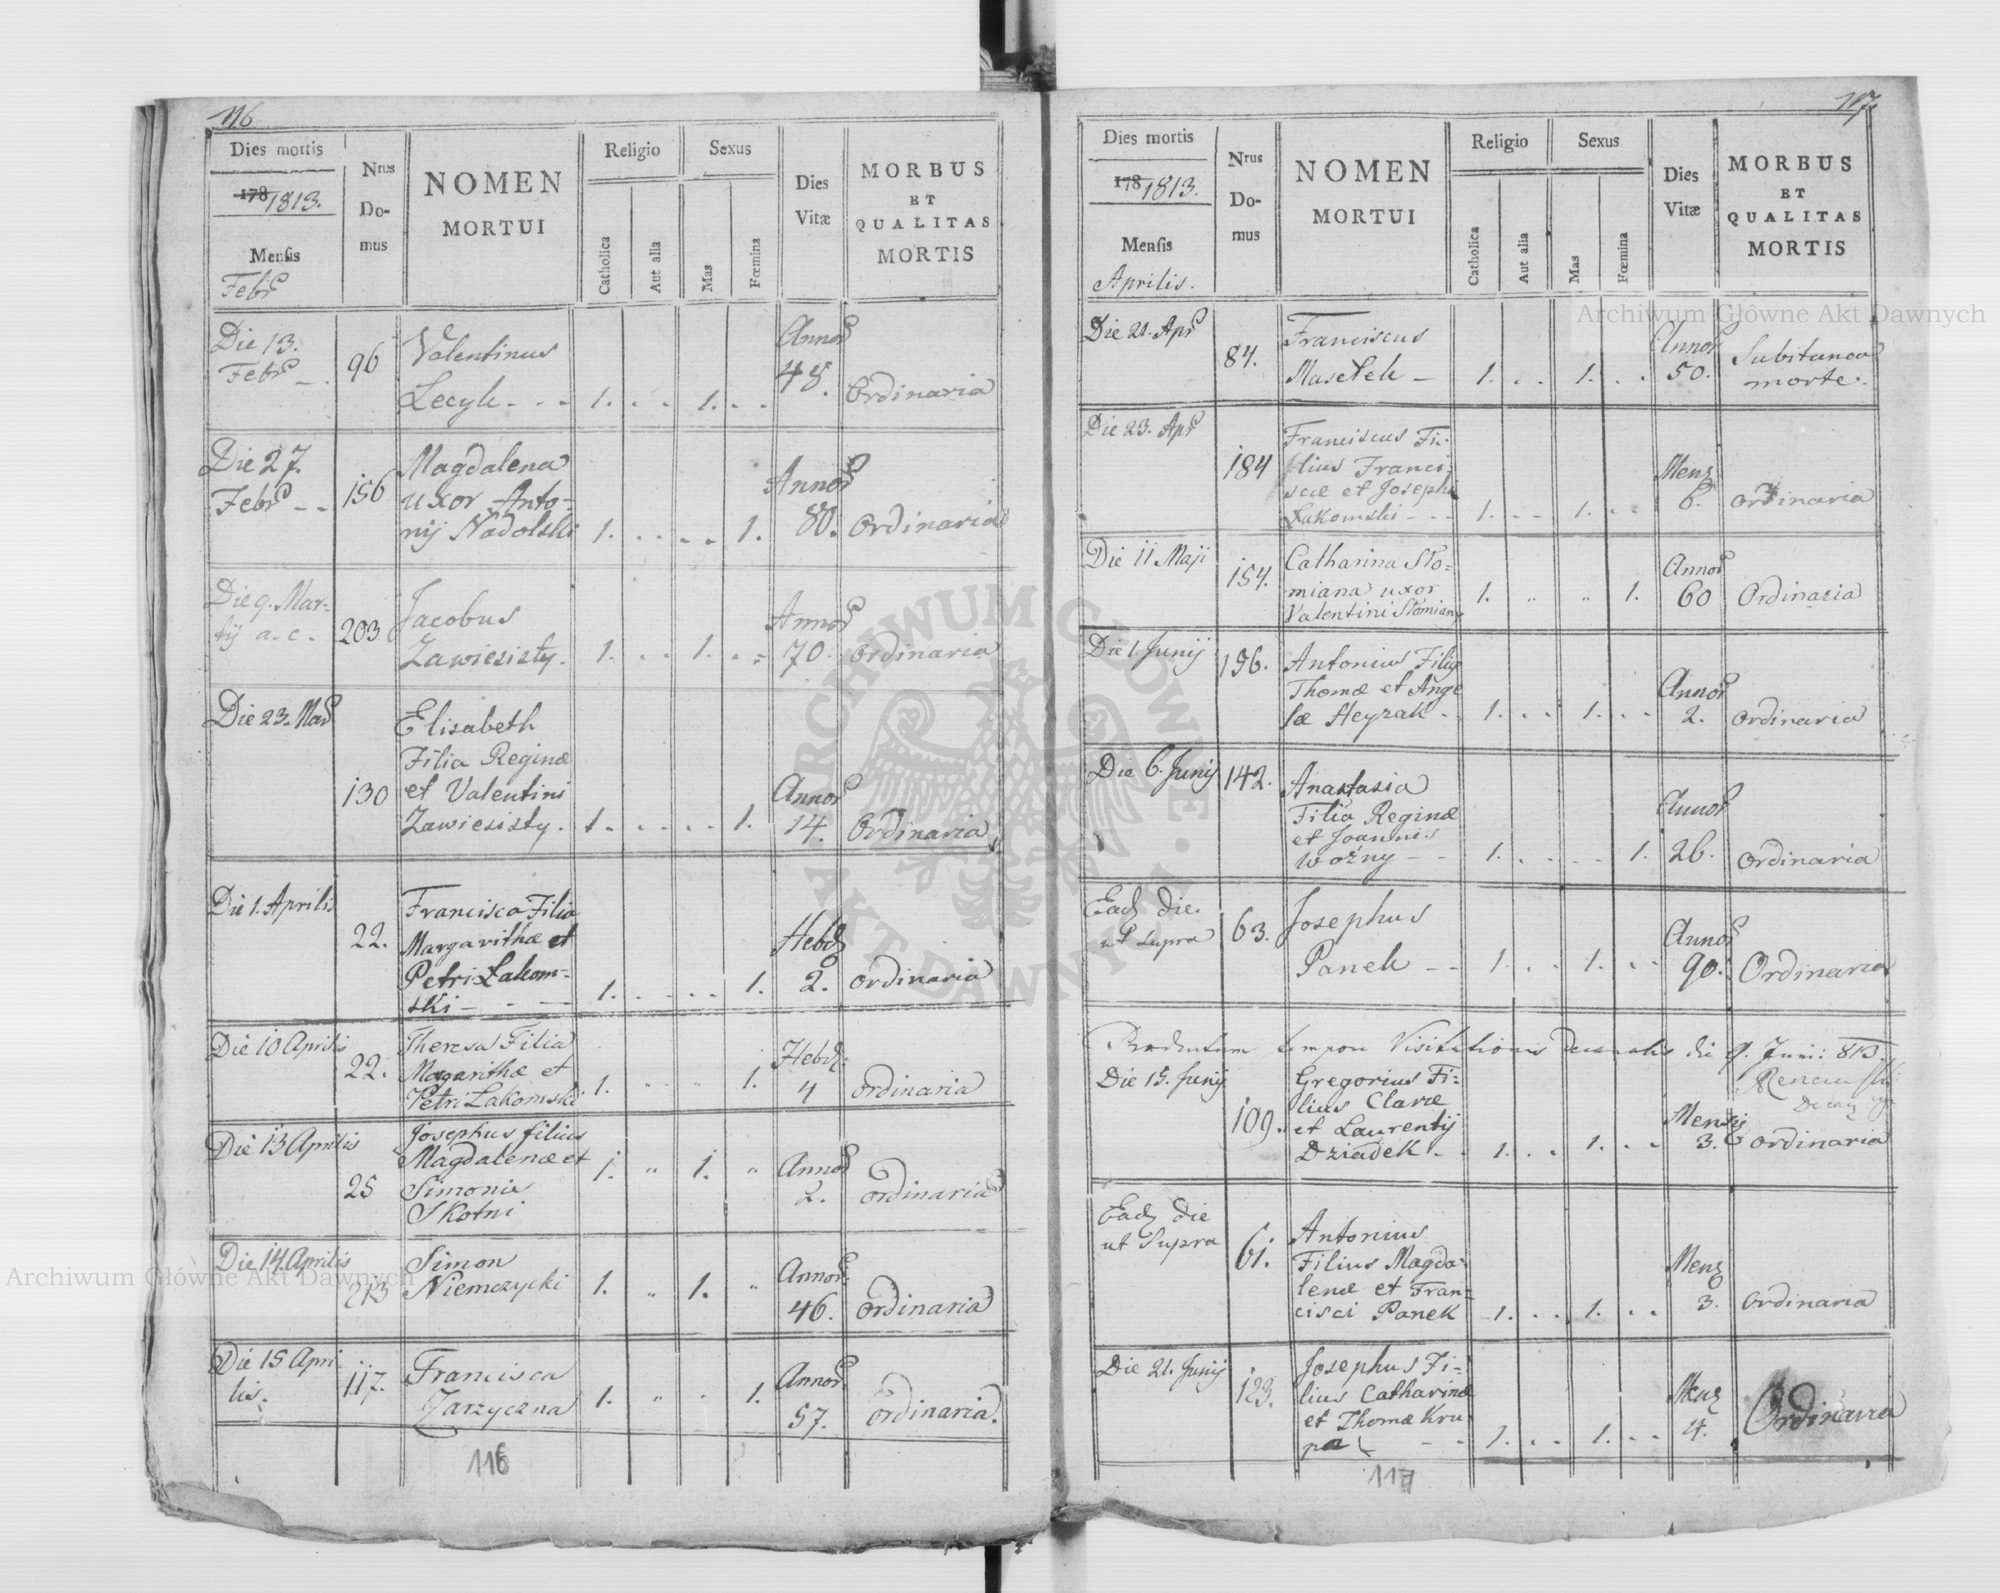 116
Dies mortis
178 1813.
Mensis
Febr
Nrus
Do-
mus
NOMEN
MORTUI
Religio
Catholica
Aut alia
Sexus
Mas
Fœmina
Dies
Vitæ
MORBUS
ET
QUALITAS
MORTIS
Die 13.
Febr
96
Valentinus
Lecyk
1.
1.
Annor
48.
Ordinaria
Die 27.
Febr
156
Magdalena
uxor Anto-
nij Nadolski
1.
1.
Annor
80.
Ordinaria
Die 9. Mar-
tij a. c.
203
Jacobus
Zawiesisty.
1.
1.
Annor
70.
Ordinaria
Die 23. Mar
130
Elisabeth
Filia Reginæ
et Valentini
Zawiesisty.
1.
1.
Annor
14.
Ordinaria
Die 1. Aprilis
22.
Francisca Filia
Margarithæ et
Petri Łakom-
ski
1.
1.
Hebd
2.
ordinaria
Die 10 Aprilis
22.
Theresa Filia
Margarithæ et
Petri Łakomski
1.
" "
1.
Hebd.
4
ordinaria
Die 13 Aprilis
25
Josephus filius
Magdalenæ et
Simonis
Skotni
1.
"
1.
"
Annor
2.
Ordinaria
Die 14. Aprilis
213
Simon
Niemczycki
1.
"
1.
"
Annor.
46.
Ordinaria
Die 15 Apri
lis.
117.
Francisca
Zarzyczna
1.
"
1.
Annor.
57.
Ordinaria.
116
117.
Dies mortis
178 1813.
Mensis
Aprilis.
Nrus
Do-
mus
NOMEN
MORTUI
Religio
Catholica
Aut alia
Sexus
Mas
Fœmina
Dies
Vitæ
MORBUS
ET
QUALITAS
MORTIS
Die 21. Apr
84.
Franciscus
Masełek
1.
1.
Annor
50.
Subitanea
morte.
Die 23. Apr
184
Franciscus Fi-
lius Francis-
cæ et Josephi
Łakomski
1.
1.
Mens
6.
ordinaria
Die 11 Maji
154.
Catharina Sło-
miana uxor
Valentini Słomiany
1.
" "
1.
Annor
60
Ordinaria
Die 1. Junij
196.
Antonius Filiq
Thomæ et Ange
læ Heyzak
1.
1.
Annor
2.
ordinaria
Die 6. Junij
142.
Anastasia
Filia Reginæ
et Joannis
Woźny
1.
1.
Annor
26.
Ordinaria
Ead die
ut supra
63.
Josephus
Panek
1.
1.
Annor
90.
Ordinaria
tempore Visitationis decanalis die 9. Junii 813.
Die 15. Junij
109.
Gregorius Fi-
lius Claræ
et Laurentij
Dziadek
1.
1.
Mensis
3.
Ordinaria
Ead die
ut Supra
61.
Antonius
Filius Magda-
lenæ et Fran-
cisci Panek
1.
1.
Mens
3.
Ordinaria
Die 21. Junij
123.
Josephus Fi-
lius Catharinæ
et Thomæ Kru-
pa
1.
1.
Mens
4.
Ordinaria
117
Archiwum Główne Akt Dawnych
Archiwum Główne Akt Dawnych
ARCHIWUM GŁÓWNE · AKT DAWNYCH ·